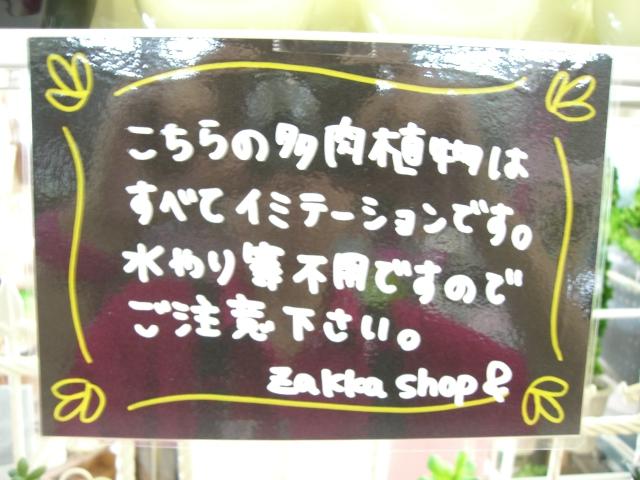 こちらの多肉植物は
すべてイミテーションです。
水やり等不用ですので
ご注意下さい。
zakka shop &